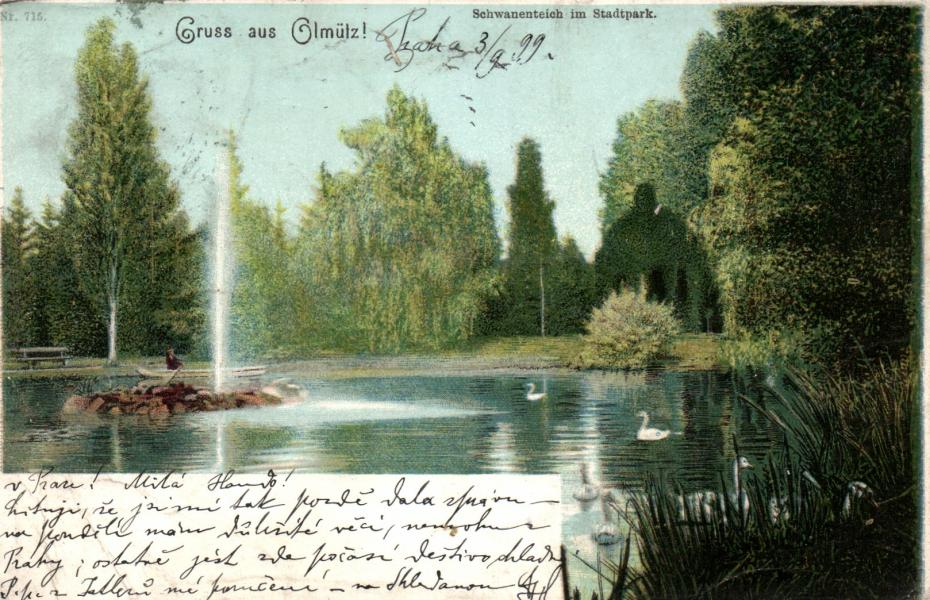 Nr. 715.
Gruss aus Olmütz!
Schwanenteich im Stadtpark.
Praha 3/9 99.
v Praze! Milá
lituji, že jsi mi tak pozdě dala zprávu —
na pondělí mám důležité věci, nemohu z
Prahy; ostatně jest zde počasí deštivo chladno
P.p. z mé poručení — na shledanou